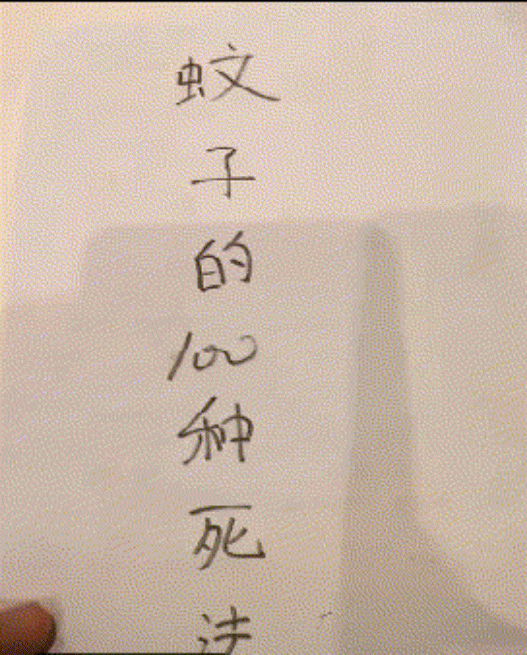 蚊
子
的
100
种
死
法